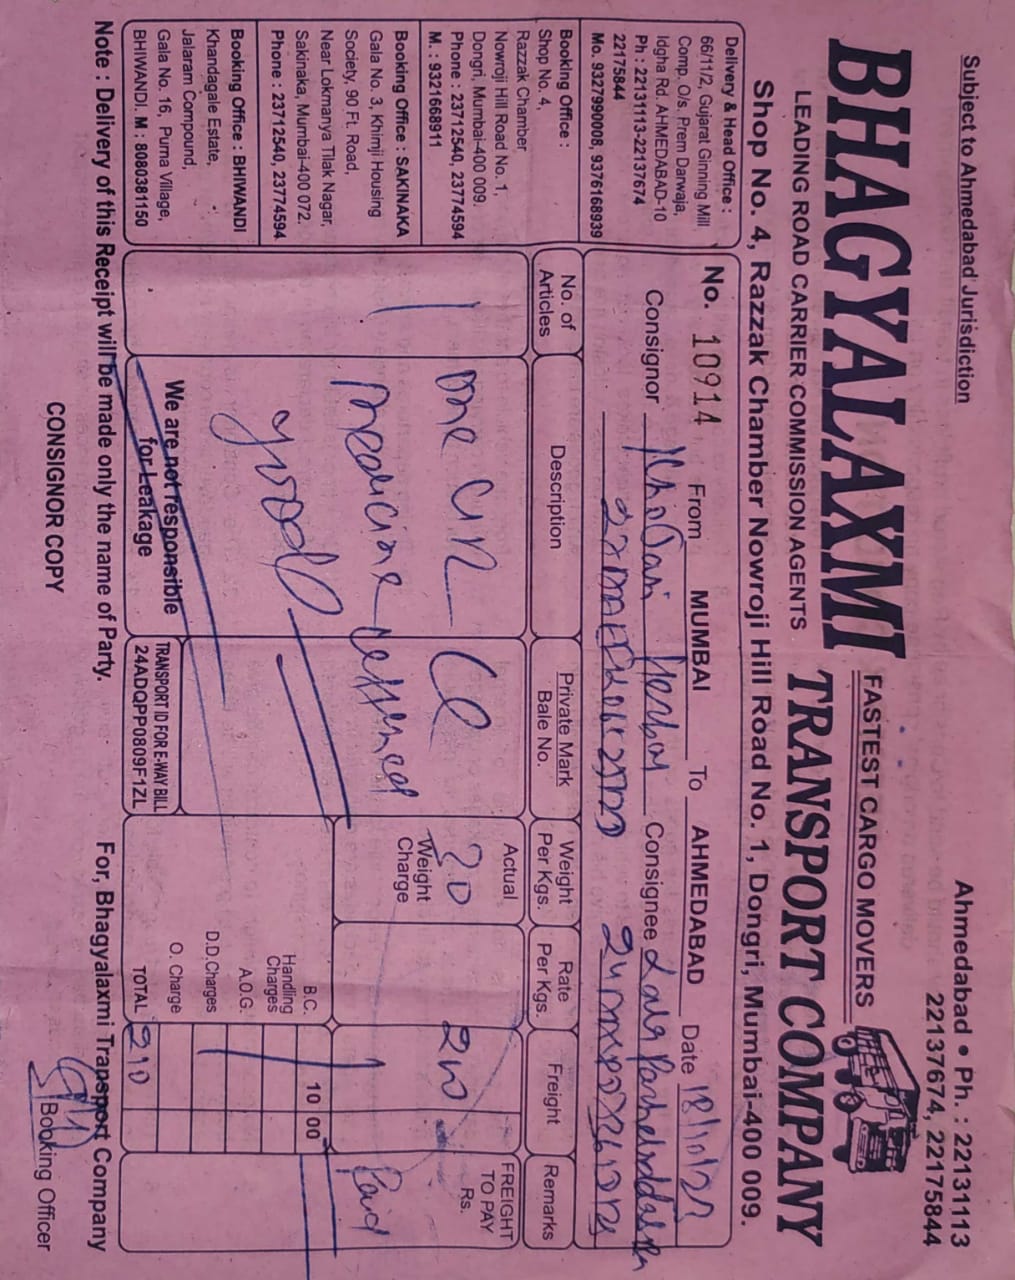 Subject to Ahmedabad Jurisdiction
Ahmedabad • Ph. : 22131113
22137674, 22175844
BHAGYALAXMI
FASTEST CARGO MOVERS
TRANSPORT COMPANY
LEADING ROAD CARRIER COMMISSION AGENTS
Shop No. 4, Razzak Chamber Nowroji Hill Road No. 1, Dongri, Mumbai-400 009.
Delivery & Head Office :
66/11/2, Gujarat Ginning Mill
Comp. O/s. Prem Darwaja,
Idgha Rd. AHMEDABAD-10
Ph : 22131113-22137674
22175844
Mo. 9327990008, 9376168939
Booking Office :
Shop No. 4,
Razzak Chamber
Nowroji Hill Road No. 1,
Dongri, Mumbai-400 009.
Phone : 23712540, 23774594
M. : 9321668911
Booking Office : SAKINAKA
Gala No. 3, Khimji Housing
Society, 90 Ft. Road,
Near Lokmanya Tilak Nagar,
Sakinaka, Mumbai-400 072.
Phone : 23712540, 23774594
Booking Office : BHIWANDI
Khandagale Estate,
Jalaram Compound,
Gala No. 16, Purna Village,
BHIWANDI. M : 8080381150
No. 10914 From MUMBAI To AHMEDABAD Date
Consignor Consignee
No. of Articles
Description
Private Mark Bale No.
Weight Per Kgs.
Rate Per Kgs.
Freight
Remarks
1
one
medicine
Actual
20
Weight Charge
200
FREIGHT TO PAY Rs.
Paid
B.C. 10 00
Handling Charges
A.O.G.
D.D.Charges
O. Charge
TOTAL 210
We are not responsible for Leakage
TRANSPORT ID FOR E-WAY BILL
24ADQPP0809F1ZL
Note : Delivery of this Receipt will be made only the name of Party.
For, Bhagyalaxmi Transport Company
CONSIGNOR COPY
Booking Officer